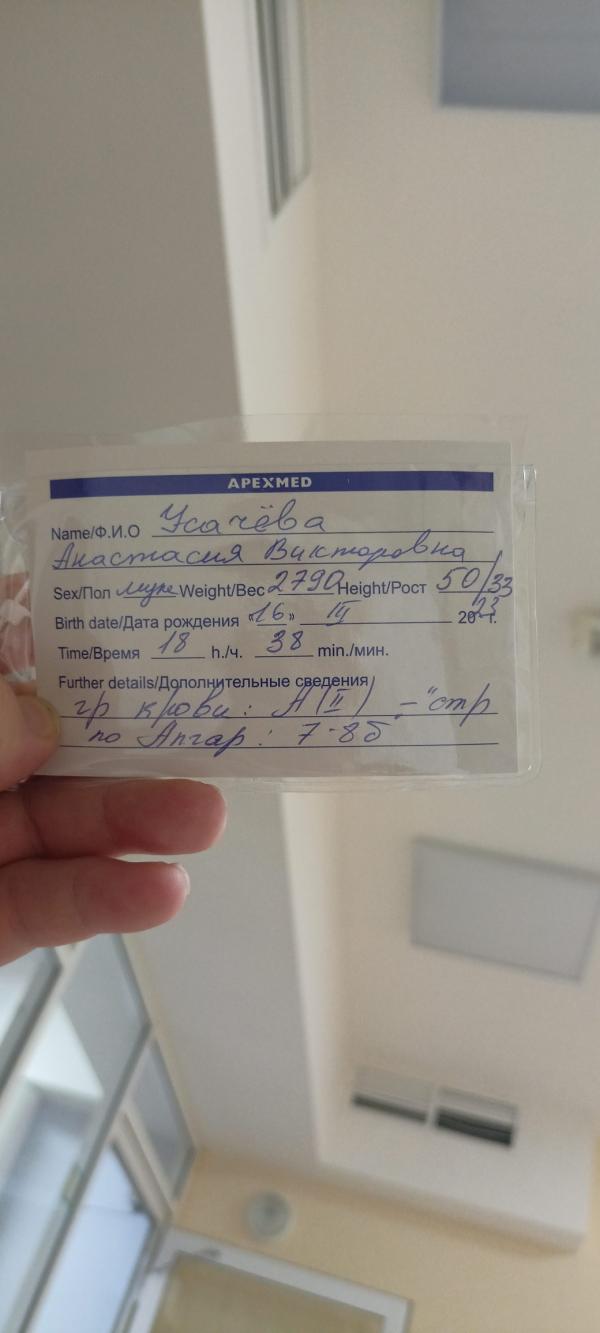 APEXMED
Name/Ф.И.О Усачёва
Анастасия Викторовна
Sex/Пол муж Weight/Вес 2790 Height/Рост 50/33
Birth date/Дата рождения «16» III 2023 г.
Time/Время 18 h./ч. 38 min./мин.
Further details/Дополнительные сведения
гр крови: A(II)
по Апгар: 7-8б